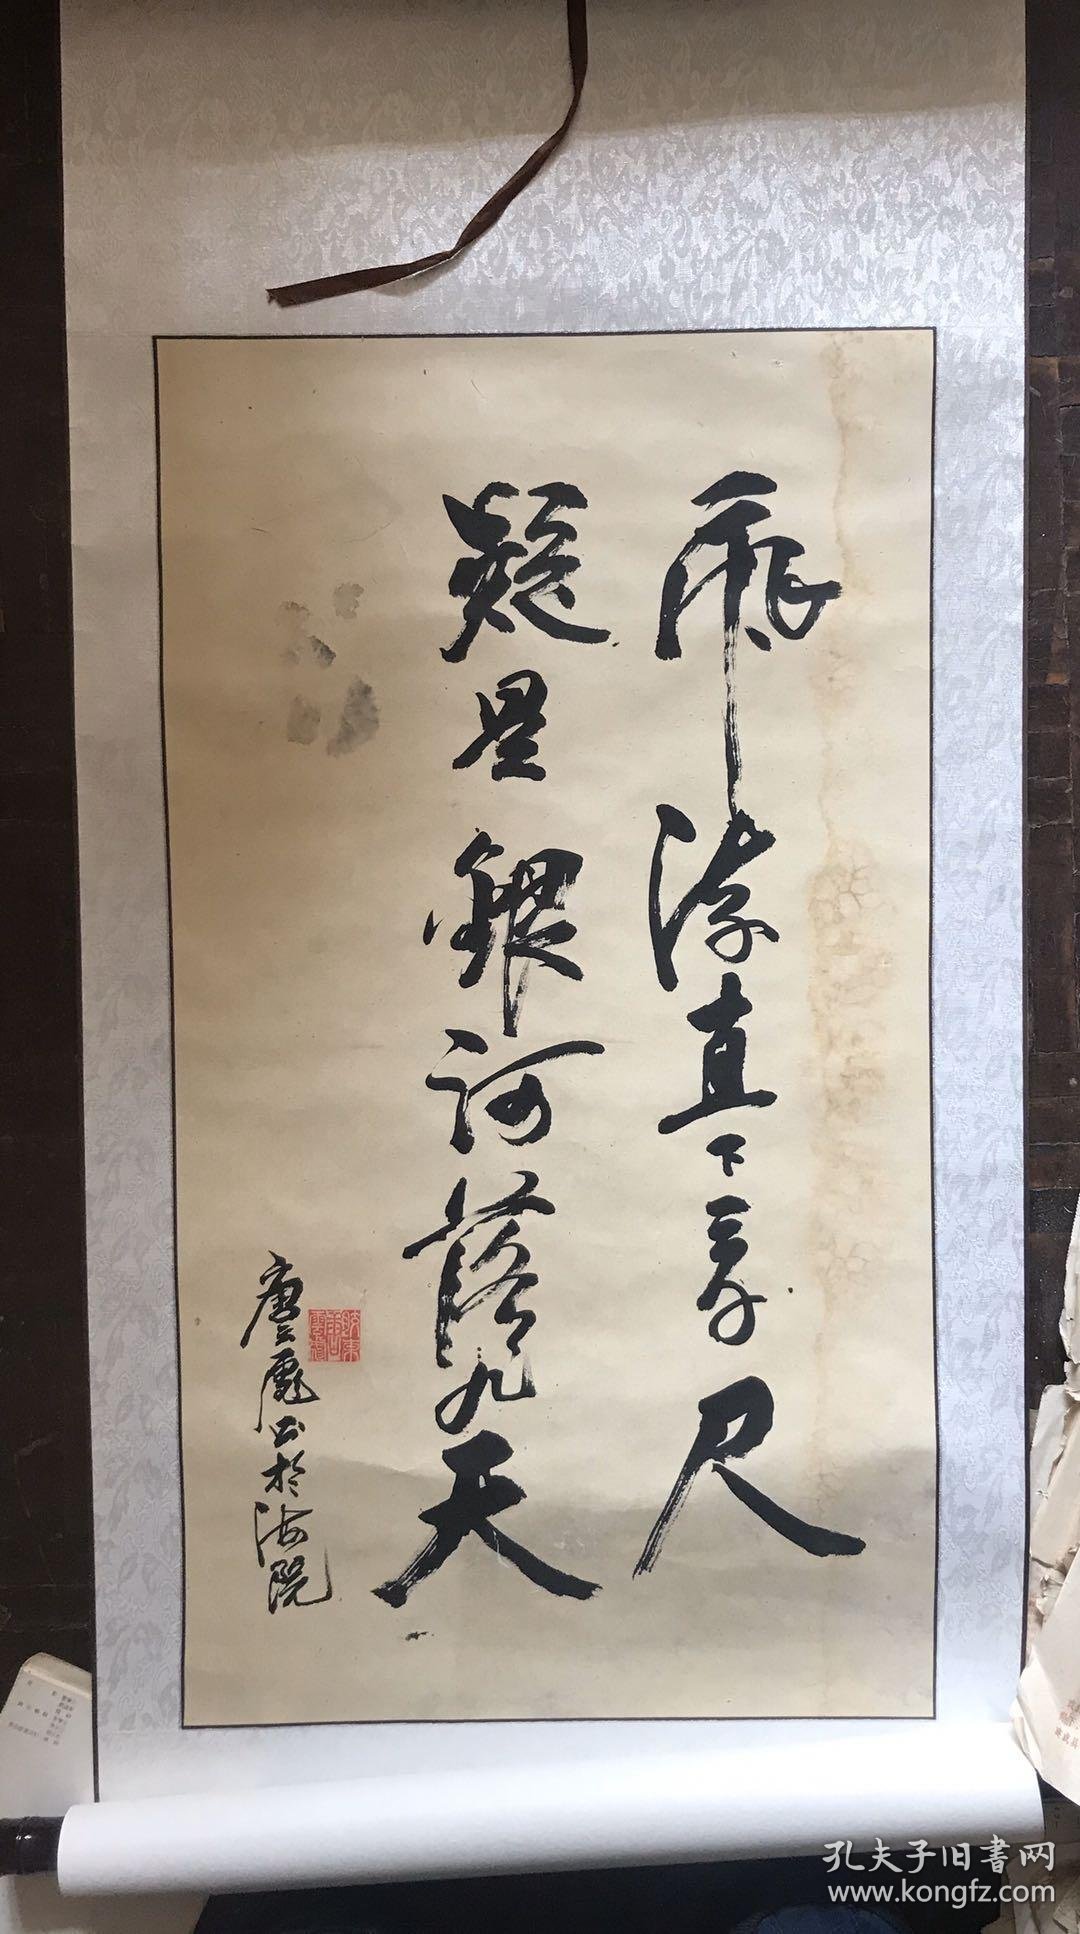 飛流直下三千尺
疑是銀河落九天
唐云麗書於海院
孔夫子旧書网
www.kongfz.com